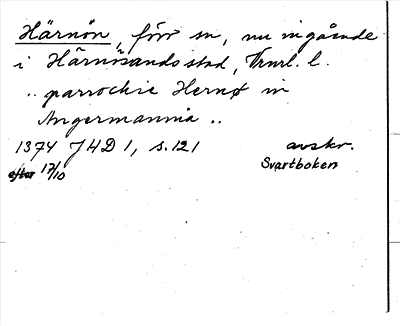 Härnön, förr sn, nu ingående
i Härnösands stad, Vnrl. l.
.. parrochie Hernø in
Angermannia ..
1374 JHD 1, s. 121 avskr.
efter 17/10 Svartboken